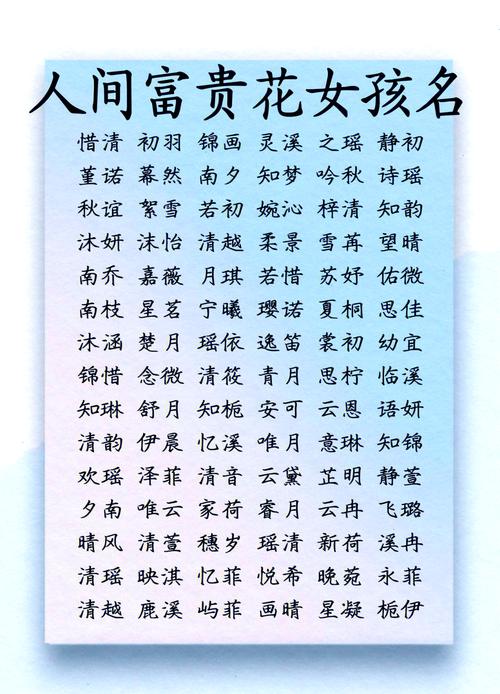 人间富贵花女孩名
惜清 初羽 锦画 灵溪 之瑶 静初
堇诺 幕然 南夕 知梦 吟秋 诗瑶
秋谊 絮雪 若初 婉沁 梓清 知韵
沐妍 沫怡 清越 柔景 雪苒 望晴
南乔 嘉薇 月琪 若惜 苏妤 佑微
南枝 星茗 宁曦 璎诺 夏桐 思佳
沐涵 楚月 瑶依 逸笛 裳初 幼宜
锦惜 念微 清筱 青月 思柠 临溪
知琳 舒月 知栀 安可 云恩 语妍
清韵 伊晨 忆溪 唯月 意琳 知锦
欢瑶 泽菲 清音 云黛 芷明 静萱
夕南 唯云 家荷 睿月 云冉 飞璐
晴风 清萱 穗岁 瑶清 新荷 溪冉
清瑶 映淇 忆菲 悦希 晚菀 永菲
清越 鹿溪 屿菲 画晴 星凝 栀伊